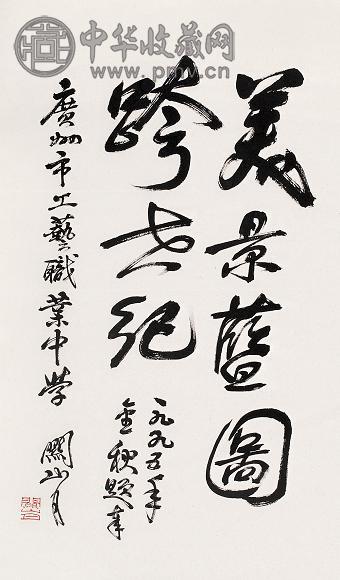 中华收藏网
www.pmv.cn
美景藍圖
跨世纪
一九九五年
金秋题奉
廣州市工藝職業中学
關山月